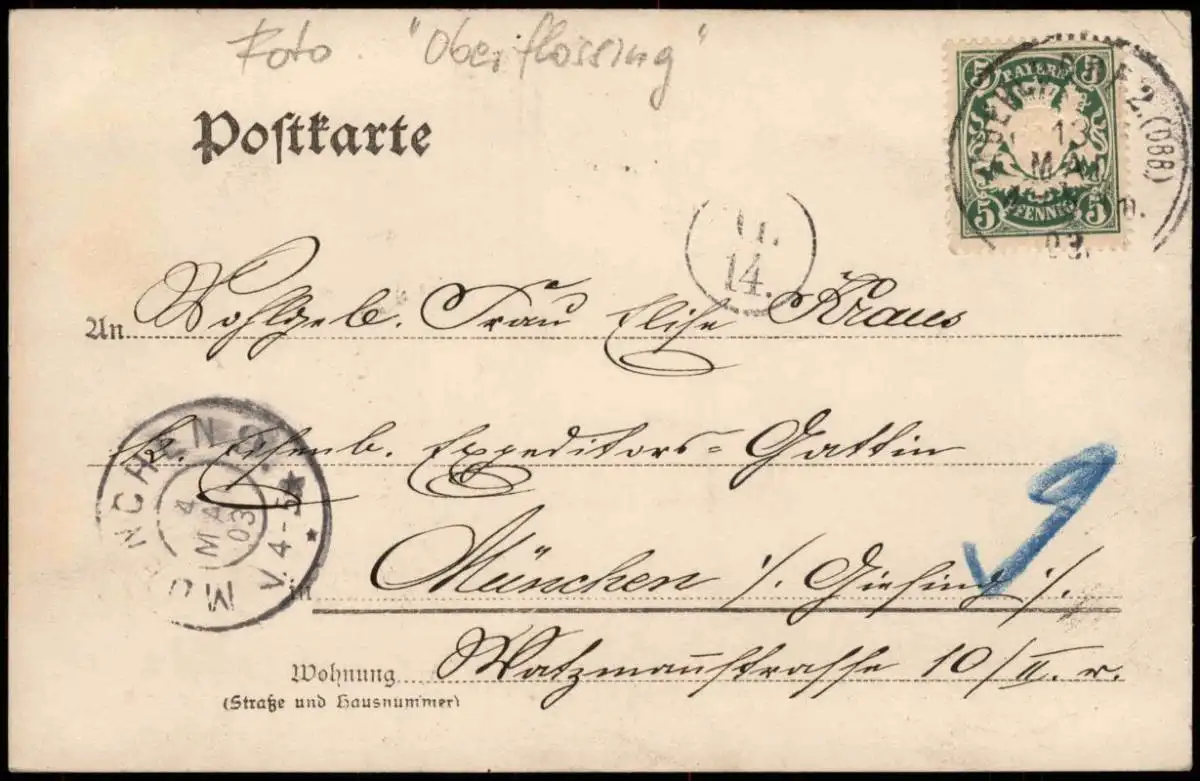 Foto "Oberflossing"
Postkarte
5 BAYERN 5
5 PFENNIG 5
2. (OBB)
13
MAI
03.
14.
An Wohlgeb. Frau Elise Kraus
k. Eisenb. Expeditors-Gattin
in München /. Giesing ./.
Wohnung Watzmannstrasse 10/II. r.
(Straße und Hausnummer)
MÜNCHEN 9.
MAI
03
V. 4-5
9